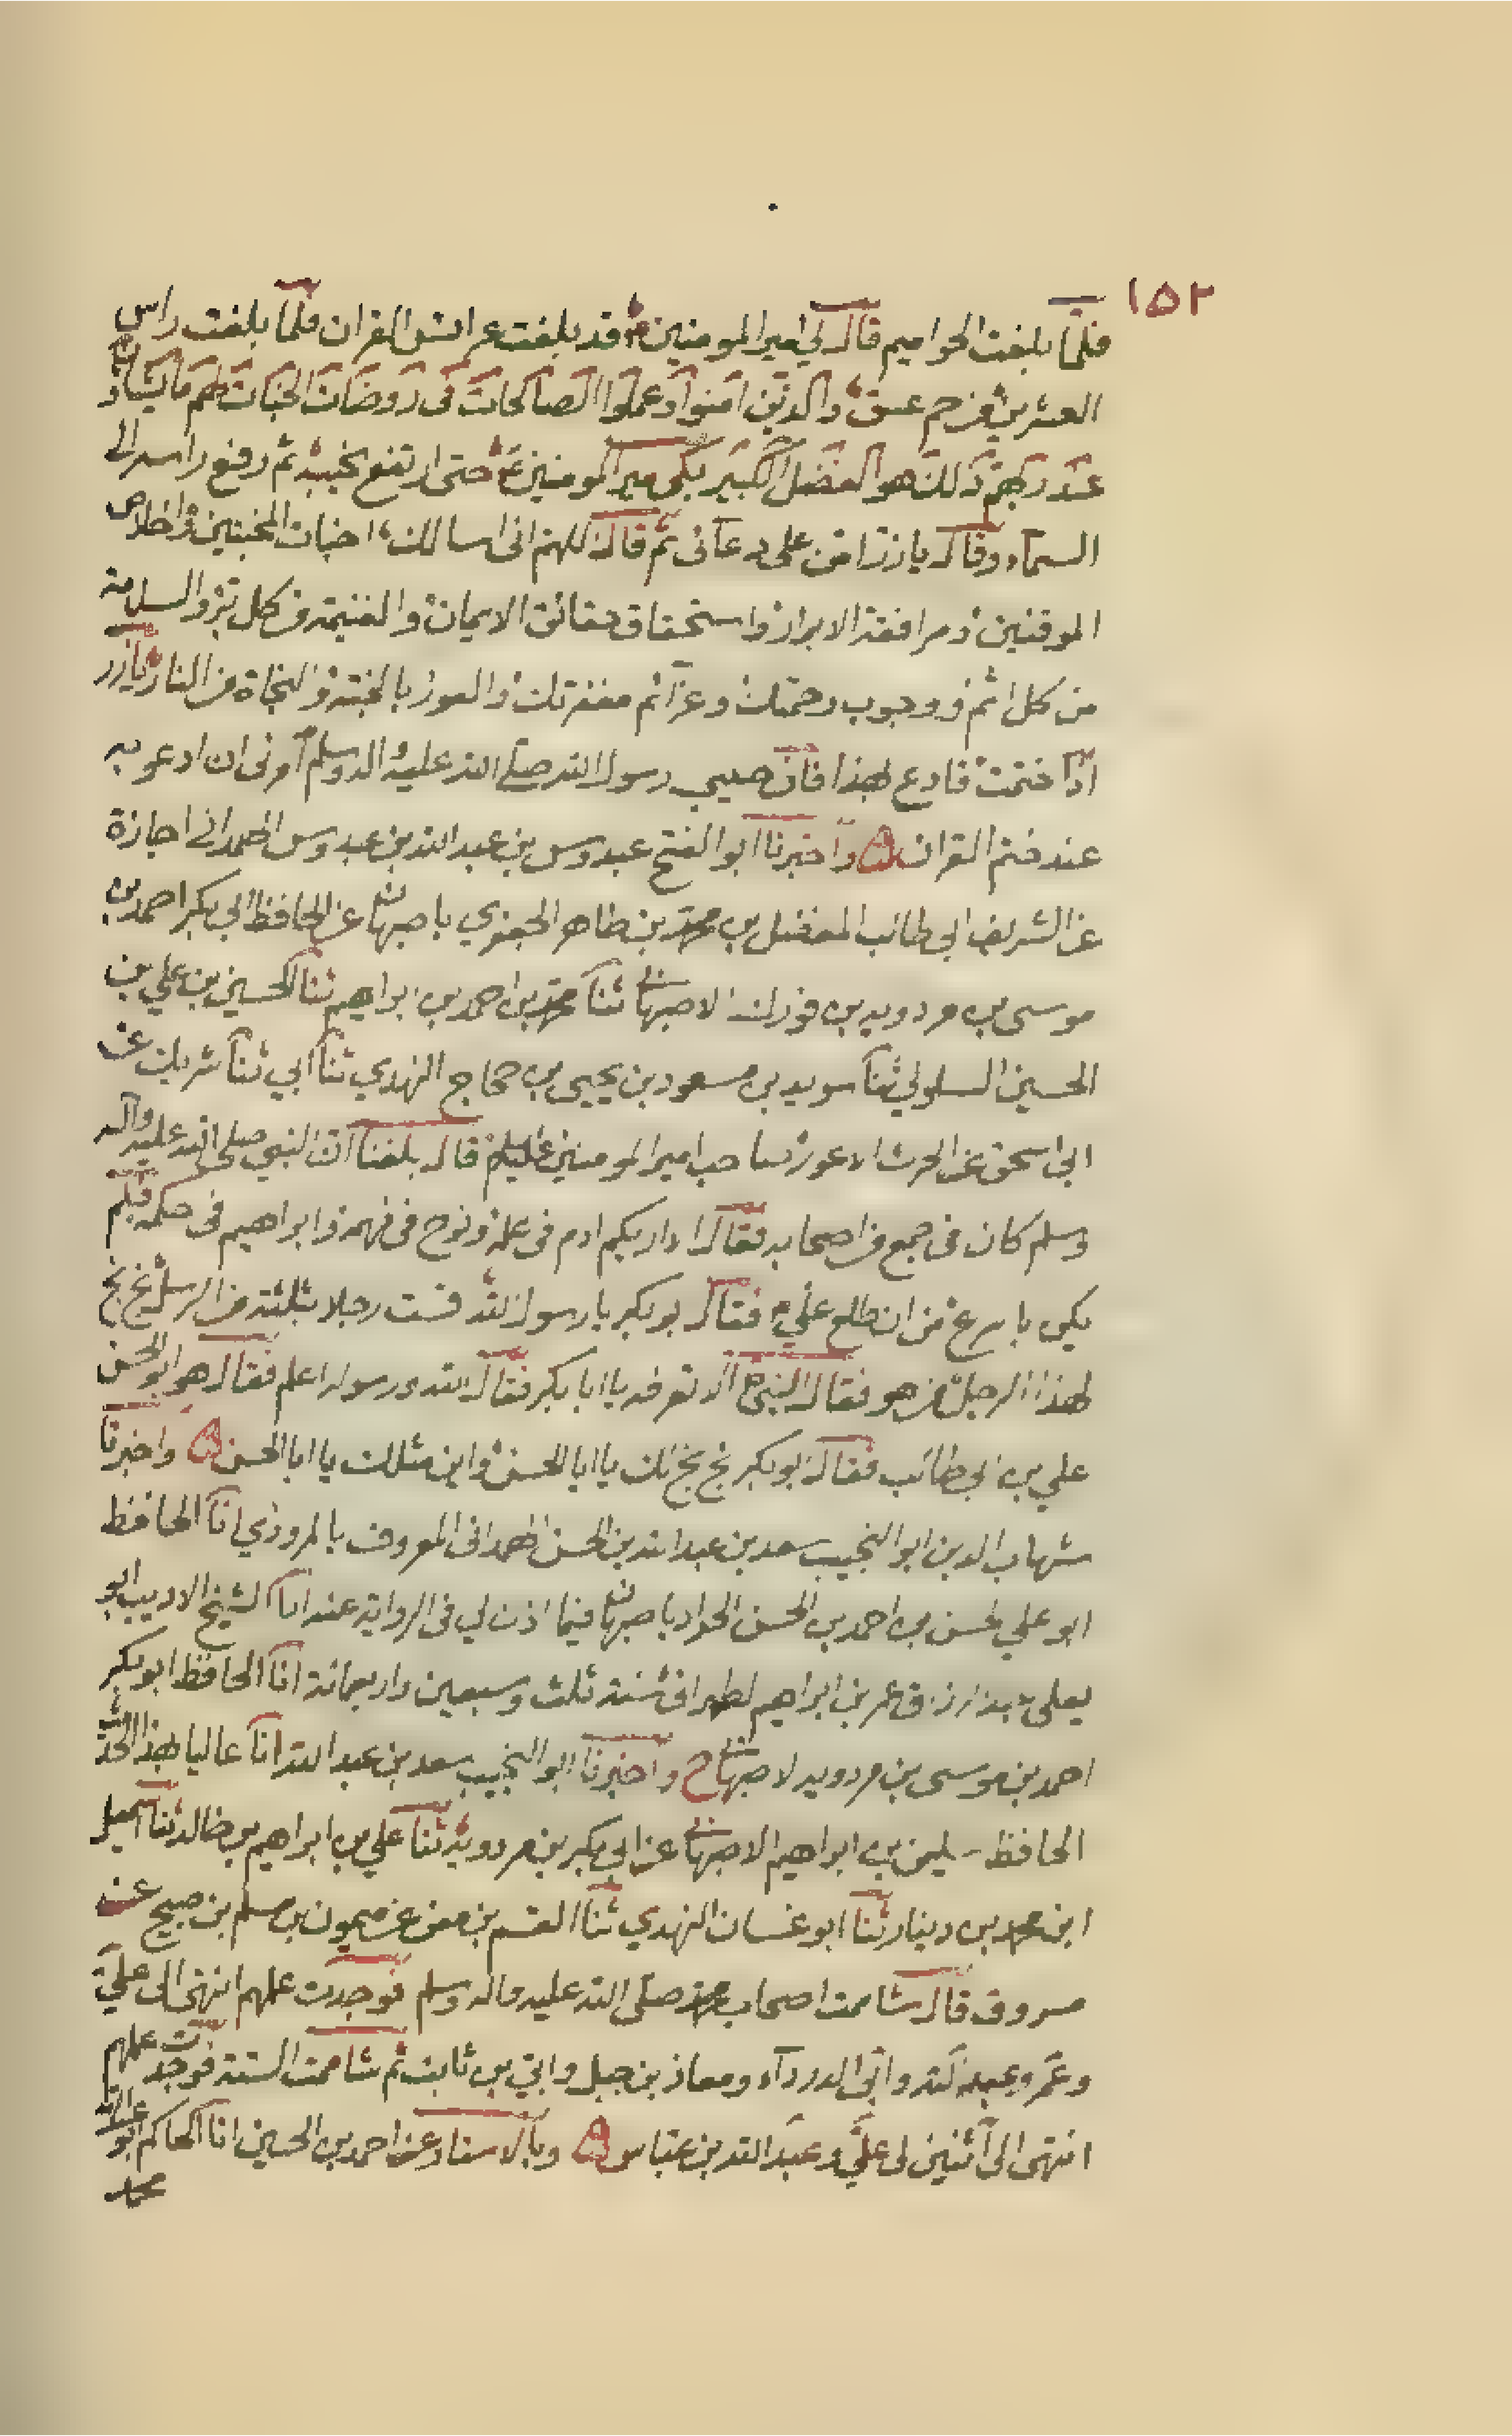 ١٥٢
فلما بلغت الحواميم قال لي امير المومنين ع قد بلغت عرائس القران فلما بلغت راس
العشرين من حم عسق والذين امنوا وعملوا الصالحات في روضات الجنات لهم ما يشاؤن
عند ربهم ذلك هو الفضل الكبير بكى امير المومنين ع حتى ارتفع نحيبه ثم رفع راسه الى
السماء وقال يا زر امن على دعائى ثم قال اللهم انى اسالك اخبات المخبتين واخلاص
الموقنين ومرافقة الابرار واستحقاق حقائق الايمان والغنيمة من كل بر والسلامة
من كل اثم ووجوب رحمتك وعزائم مغفرتك والفوز بالجنة والنجاة من النار يا زر
اذا ختمت فادع بهذا فان حبيبي رسول الله صلى الله عليه واله وسلم امرنى ان ادعو به
عند ختم القران ه واخبرنا ابو الفتح عبدوس بن عبد الله بن عبدوس الهمدانى اجازة
عن الشريف ابي طالب المفضل بن محمد بن طاهر الجعفري باصبهان عن الحافظ ابي بكر احمد بن
موسى بن مردويه بن فورك الاصبهانى ثنا محمد بن احمد بن ابراهيم ثنا الحسين بن علي بن
الحسين السلولي ثنا سويد بن مسعود بن يحيى بن حجاج النهدي ثنا ابي ثنا شريك عن
ابى اسحق عن الحرث الاعور صاحب امير المومنين عليه السلم قال بلغنا ان النبي صلى الله عليه واله
وسلم كان فى جمع من اصحابه فقال اراريكم ادم فى علمه ونوح فى فهمه وابراهيم فى حكمه فلم
يكن باسرع من ان طلع علي ع فقال ابو بكر يا رسول الله قست رجلا بثلثة من الرسل بخ بخ
لهذا الرجل من هو فقال النبي ص الا تعرفه يا ابا بكر فقال الله ورسوله اعلم فقال هو ابو الحسن
علي بن ابي طالب فقال ابو بكر بخ بخ لك يا ابا الحسن واين مثلك يا ابا الحسن ه واخبرنا
شهاب الدين ابو النجيب سعد بن عبد الله بن الحسن الهمدانى المعروف بالمروزي انا الحافظ
ابو علي الحسن بن احمد بن الحسن الحداد باصبهان فيما اذن لي فى الرواية عنه انا الشيخ الاديب ابو
يعلى عبد الرزاق عمر بن ابراهيم الطهرانى سنة ثلث وسبعين واربعمائة انا الحافظ ابو بكر
احمد بن موسى بن مردويه الاصبهانى ح واخبرنا ابو النجيب سعد بن عبد الله انا عاليا بهذا الحديث
الحافظ سليمن بن ابراهيم الاصبهانى عن ابي بكر بن مردويه ثنا علي بن ابراهيم بن خالد ثنا اسمعيل
ابن محمد بن دينار ثنا ابو غسان النهدي ثنا القسم بن معن عن ميمون بن مسلم بن صبيح عن
مسروق قال شاممت اصحاب محمد صلى الله عليه واله وسلم فوجدت علمهم انتهى الى علي
وعمر وعبد الله وابى الدرداء ومعاذ بن جبل وابى بن ثابت ثم شاممت الستة فوجدت علمهم
انتهى الى اثنين الى علي وعبد الله بن عباس ه وبالاسناد عن احمد بن الحسين انا الحاكم ابو عبد الله
محمد